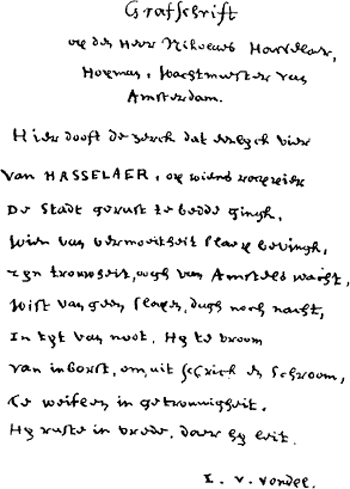 Grafschrift
op den Heer Nikolaes Hasselaer,
Hopman, Wachtmeester van
Amsterdam.
Hier dooft de zerck dat eerlyck vier
van HASSELAER, op wiens rappier
De Stadt gerust te bedde gingh.
Wien van vermoeitheit slaep bevingh,
zyn trouwheit, oogh van Amstels wacht,
Wist van geen slapen, dagh noch nacht,
In tyt van noot. Hy te vroom
van inborst, om uit schrick en schroom,
Te weifelen in getrouwigheit.
Hy ruste in vrede, daer hy leit.
I. v. Vondel.